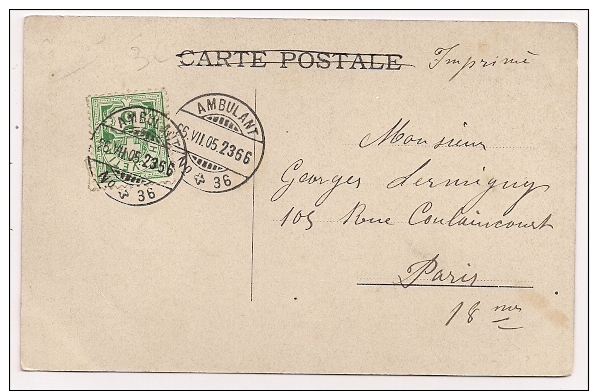 CARTE POSTALE
Imprimé
AMBULANT
25.VII.05.2366
No 36
AMBULANT
25.VII.05.2366
No 36
Monsieur
Georges Dermigny
105 Rue Coulaincourt
Paris
18 mes